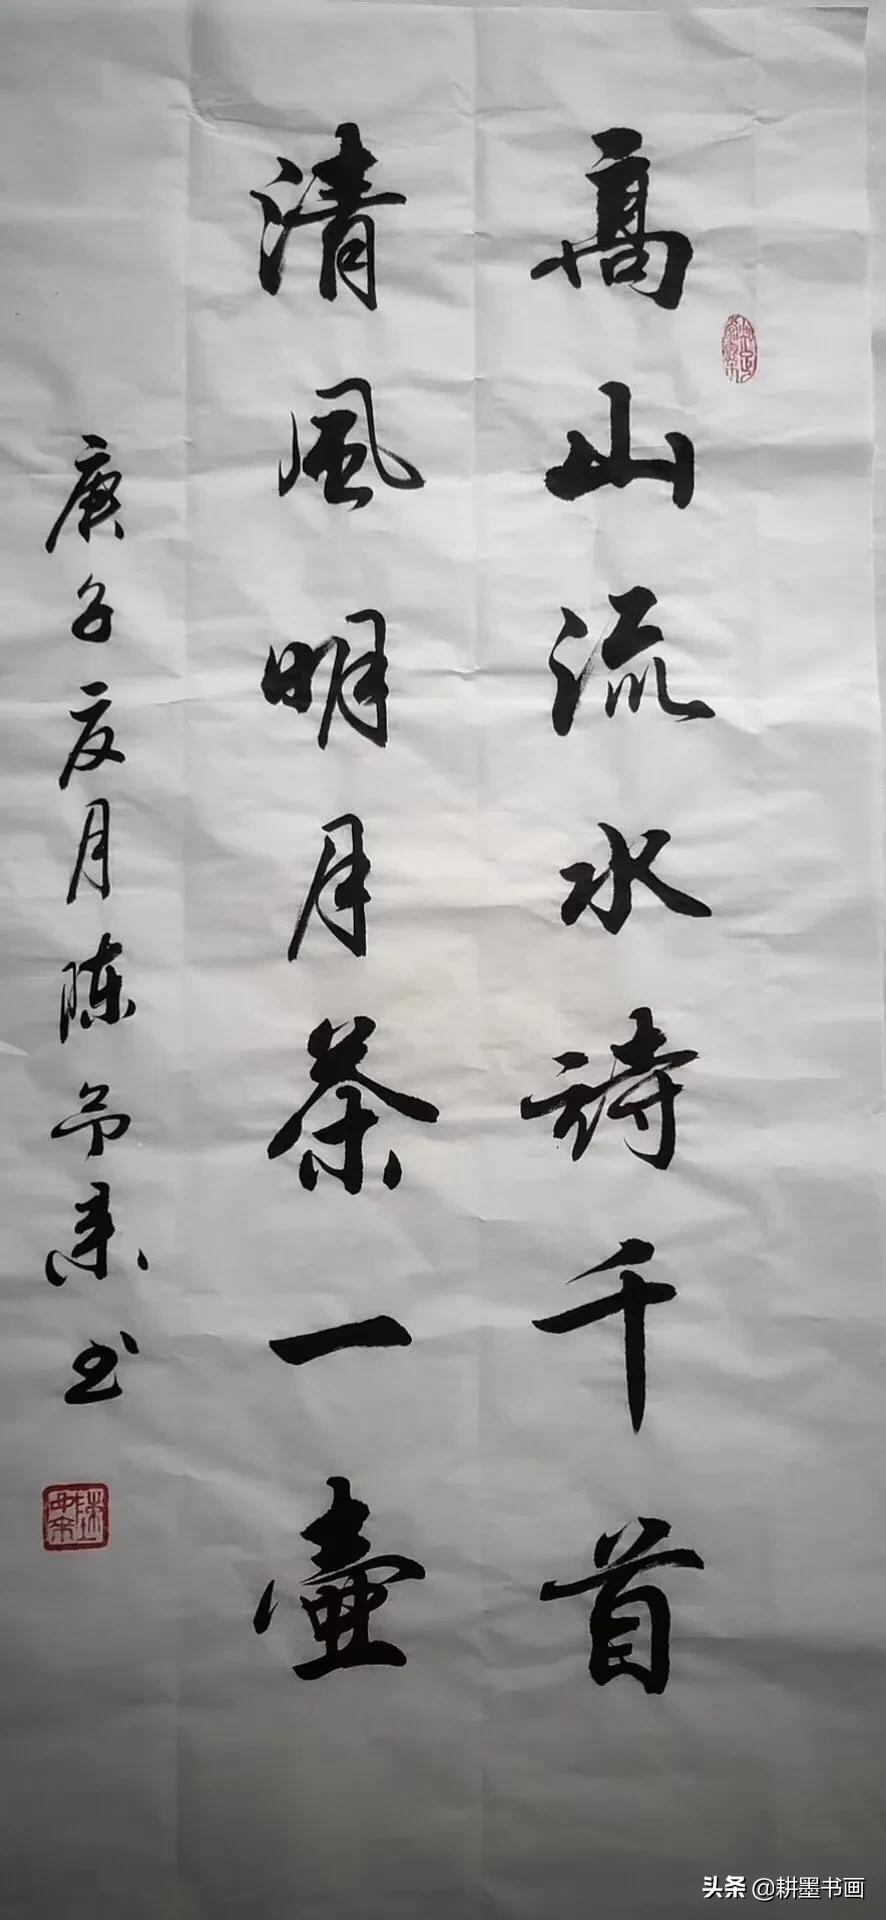 高山流水詩千首
清風明月茶一壺
庚子夏月陈
书
头条 @耕墨书画